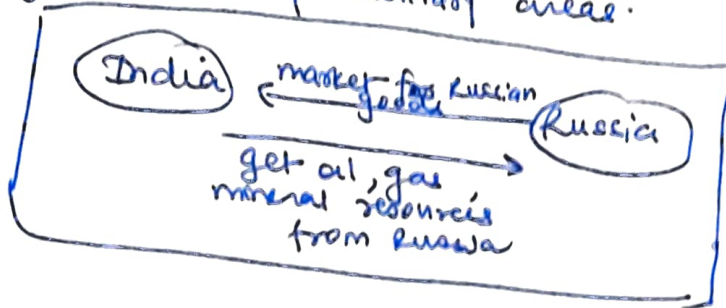 areas.
India
market for Russian
goods
Russia
get oil, gas
mineral resources
from Russia